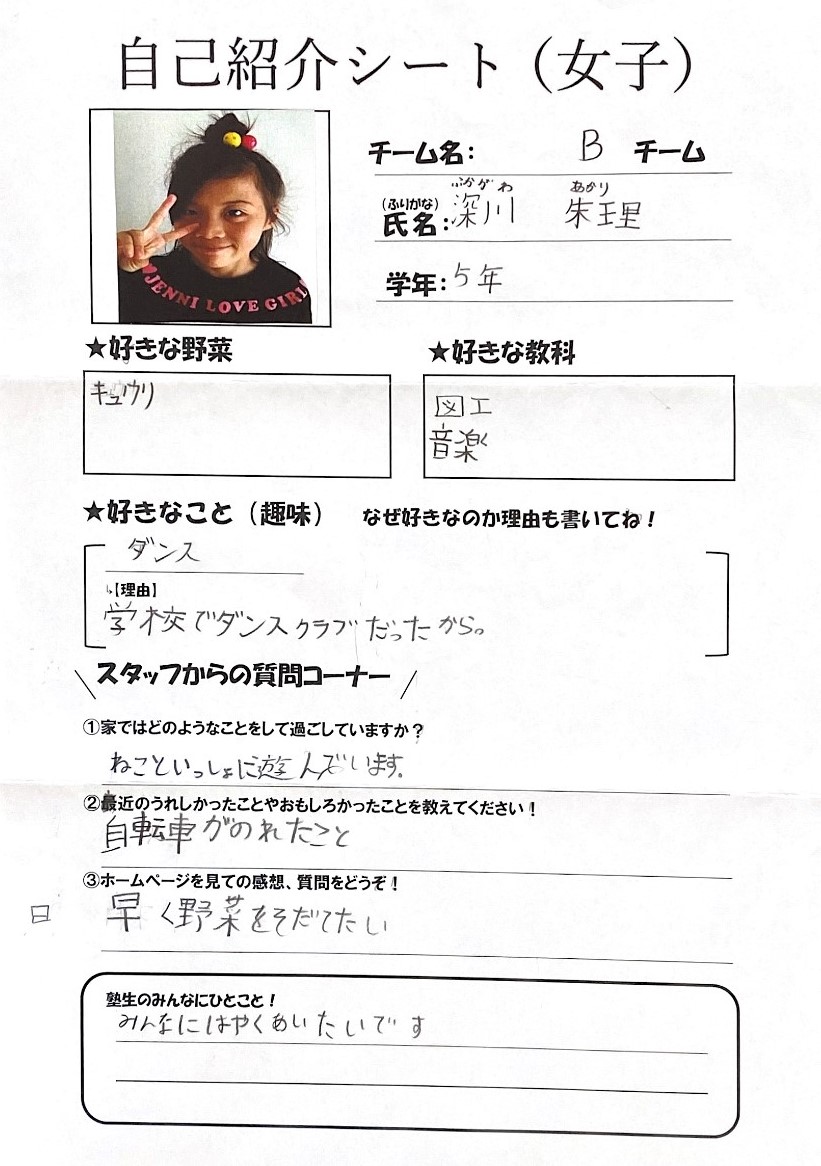 自己紹介シート（女子）
JENNI LOVE GIRL
チーム名： B チーム
ふかがわ あかり
（ふりがな）
氏名：深川 朱王里
学年：5年
★好きな野菜
キュウリ
★好きな教科
図工
音楽
★好きなこと（趣味） なぜ好きなのか理由も書いてね！
ダンス
【理由】
学校でダンスクラブだったから。
スタッフからの質問コーナー
①家ではどのようなことをして過ごしていますか？
ねこといっしょに遊んでいます。
②最近のうれしかったことやおもしろかったことを教えてください！
自転車がのれたこと
③ホームページを見ての感想、質問をどうぞ！
日 早く野菜をそだてたい
塾生のみんなにひとこと！
みんなにはやくあいたいです